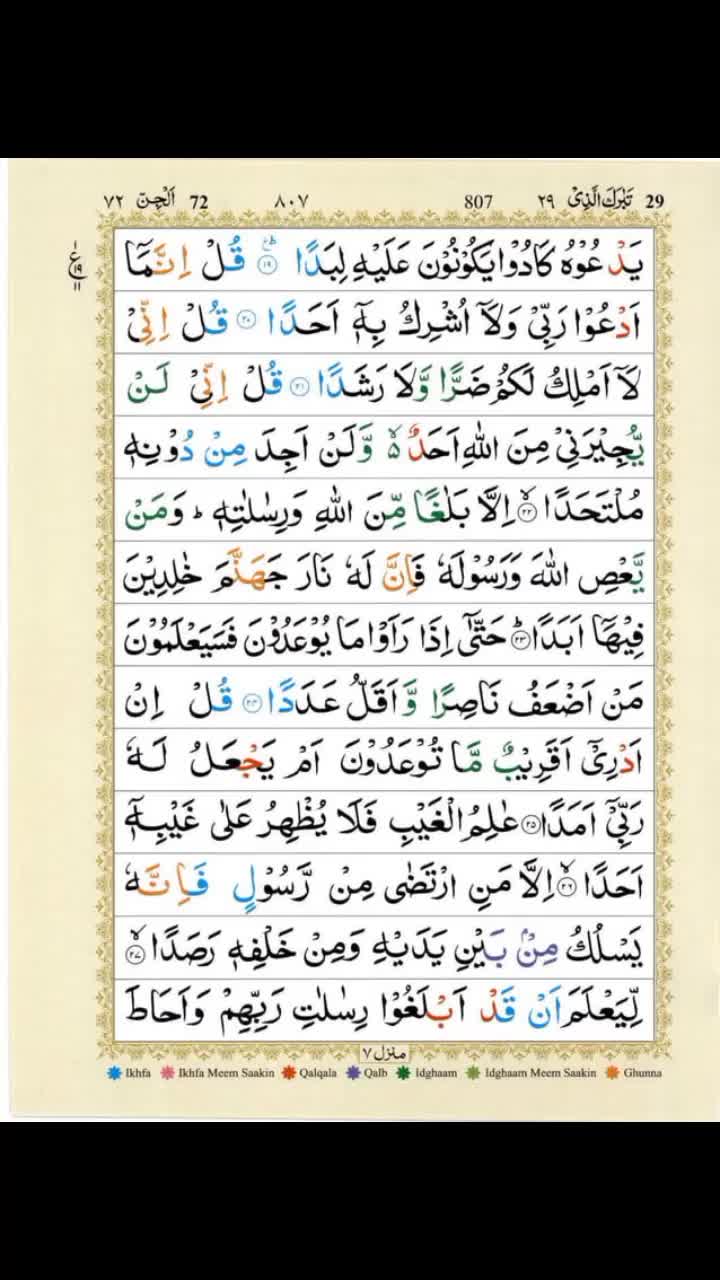 29 تَبٰرَكَ الَّذِیْ ٢٩ 807 ٨٠٧ 72 اَلْجِنّ ٧٢
یَدْعُوْهُ كَادُوْا یَكُوْنُوْنَ عَلَیْهِ لِبَدًا ؕ۠ ١٩ قُلْ اِنَّمَاۤ
ع ١٩ ١١
اَدْعُوْا رَبِّیْ وَلَاۤ اُشْرِكُ بِهٖۤ اَحَدًا ٢٠ قُلْ اِنِّیْ
لَاۤ اَمْلِكُ لَكُمْ ضَرًّا وَّلَا رَشَدًا ٢١ قُلْ اِنِّیْ لَنْ
یُّجِیْرَنِیْ مِنَ اللّٰهِ اَحَدٌ ۙ۬ وَّلَنْ اَجِدَ مِنْ دُوْنِهٖ
مُلْتَحَدًا ۙ ٢٢ اِلَّا بَلٰغًا مِّنَ اللّٰهِ وَرِسٰلٰتِهٖ ؕ وَمَنْ
یَّعْصِ اللّٰهَ وَرَسُوْلَهٗ فَاِنَّ لَهٗ نَارَ جَهَنَّمَ خٰلِدِیْنَ
فِیْهَاۤ اَبَدًا ؕ ٢٣ حَتّٰۤی اِذَا رَاَوْا مَا یُوْعَدُوْنَ فَسَیَعْلَمُوْنَ
مَنْ اَضْعَفُ نَاصِرًا وَّاَقَلُّ عَدَدًا ٢٤ قُلْ اِنْ
اَدْرِیْۤ اَقَرِیْبٌ مَّا تُوْعَدُوْنَ اَمْ یَجْعَلُ لَهٗ
رَبِّیْۤ اَمَدًا ٢٥ عٰلِمُ الْغَیْبِ فَلَا یُظْهِرُ عَلٰی غَیْبِهٖۤ
اَحَدًا ۙ ٢٦ اِلَّا مَنِ ارْتَضٰی مِنْ رَّسُوْلٍ فَاِنَّهٗ
یَسْلُكُ مِنْۢ بَیْنِ یَدَیْهِ وَمِنْ خَلْفِهٖ رَصَدًا ۙ ٢٧
لِّیَعْلَمَ اَنْ قَدْ اَبْلَغُوْا رِسٰلٰتِ رَبِّهِمْ وَاَحَاطَ
منزل ٧
Ikhfa Ikhfa Meem Saakin Qalqala Qalb Idghaam Idghaam Meem Saakin Ghunna